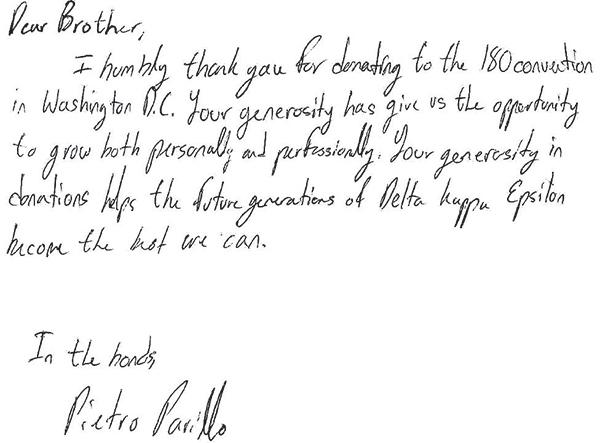 Dear Brother,
I humbly thank you for donating to the 180 convention
in Washington D.C. Your generosity has give us the opportunity
to grow both personally and perfessionally. Your generosity in
donations helps the future generations of Delta Kappa Epsilon
become the best we can.
In the bonds,
Pietro Parillo